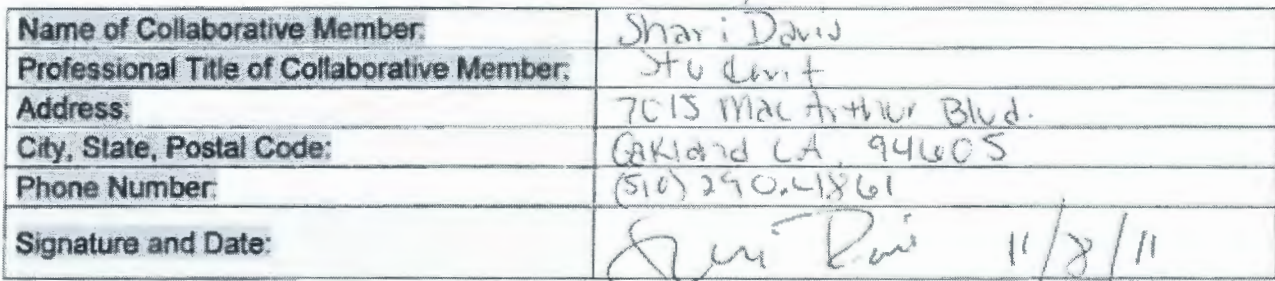 Name of Collaborative Member: Shari Davis
Professional Title of Collaborative Member: Student
Address: 7015 MacArthur Blvd.
City, State, Postal Code: Oakland CA, 94605
Phone Number: (510) 290.4861
Signature and Date: Shari Davis 11/8/11